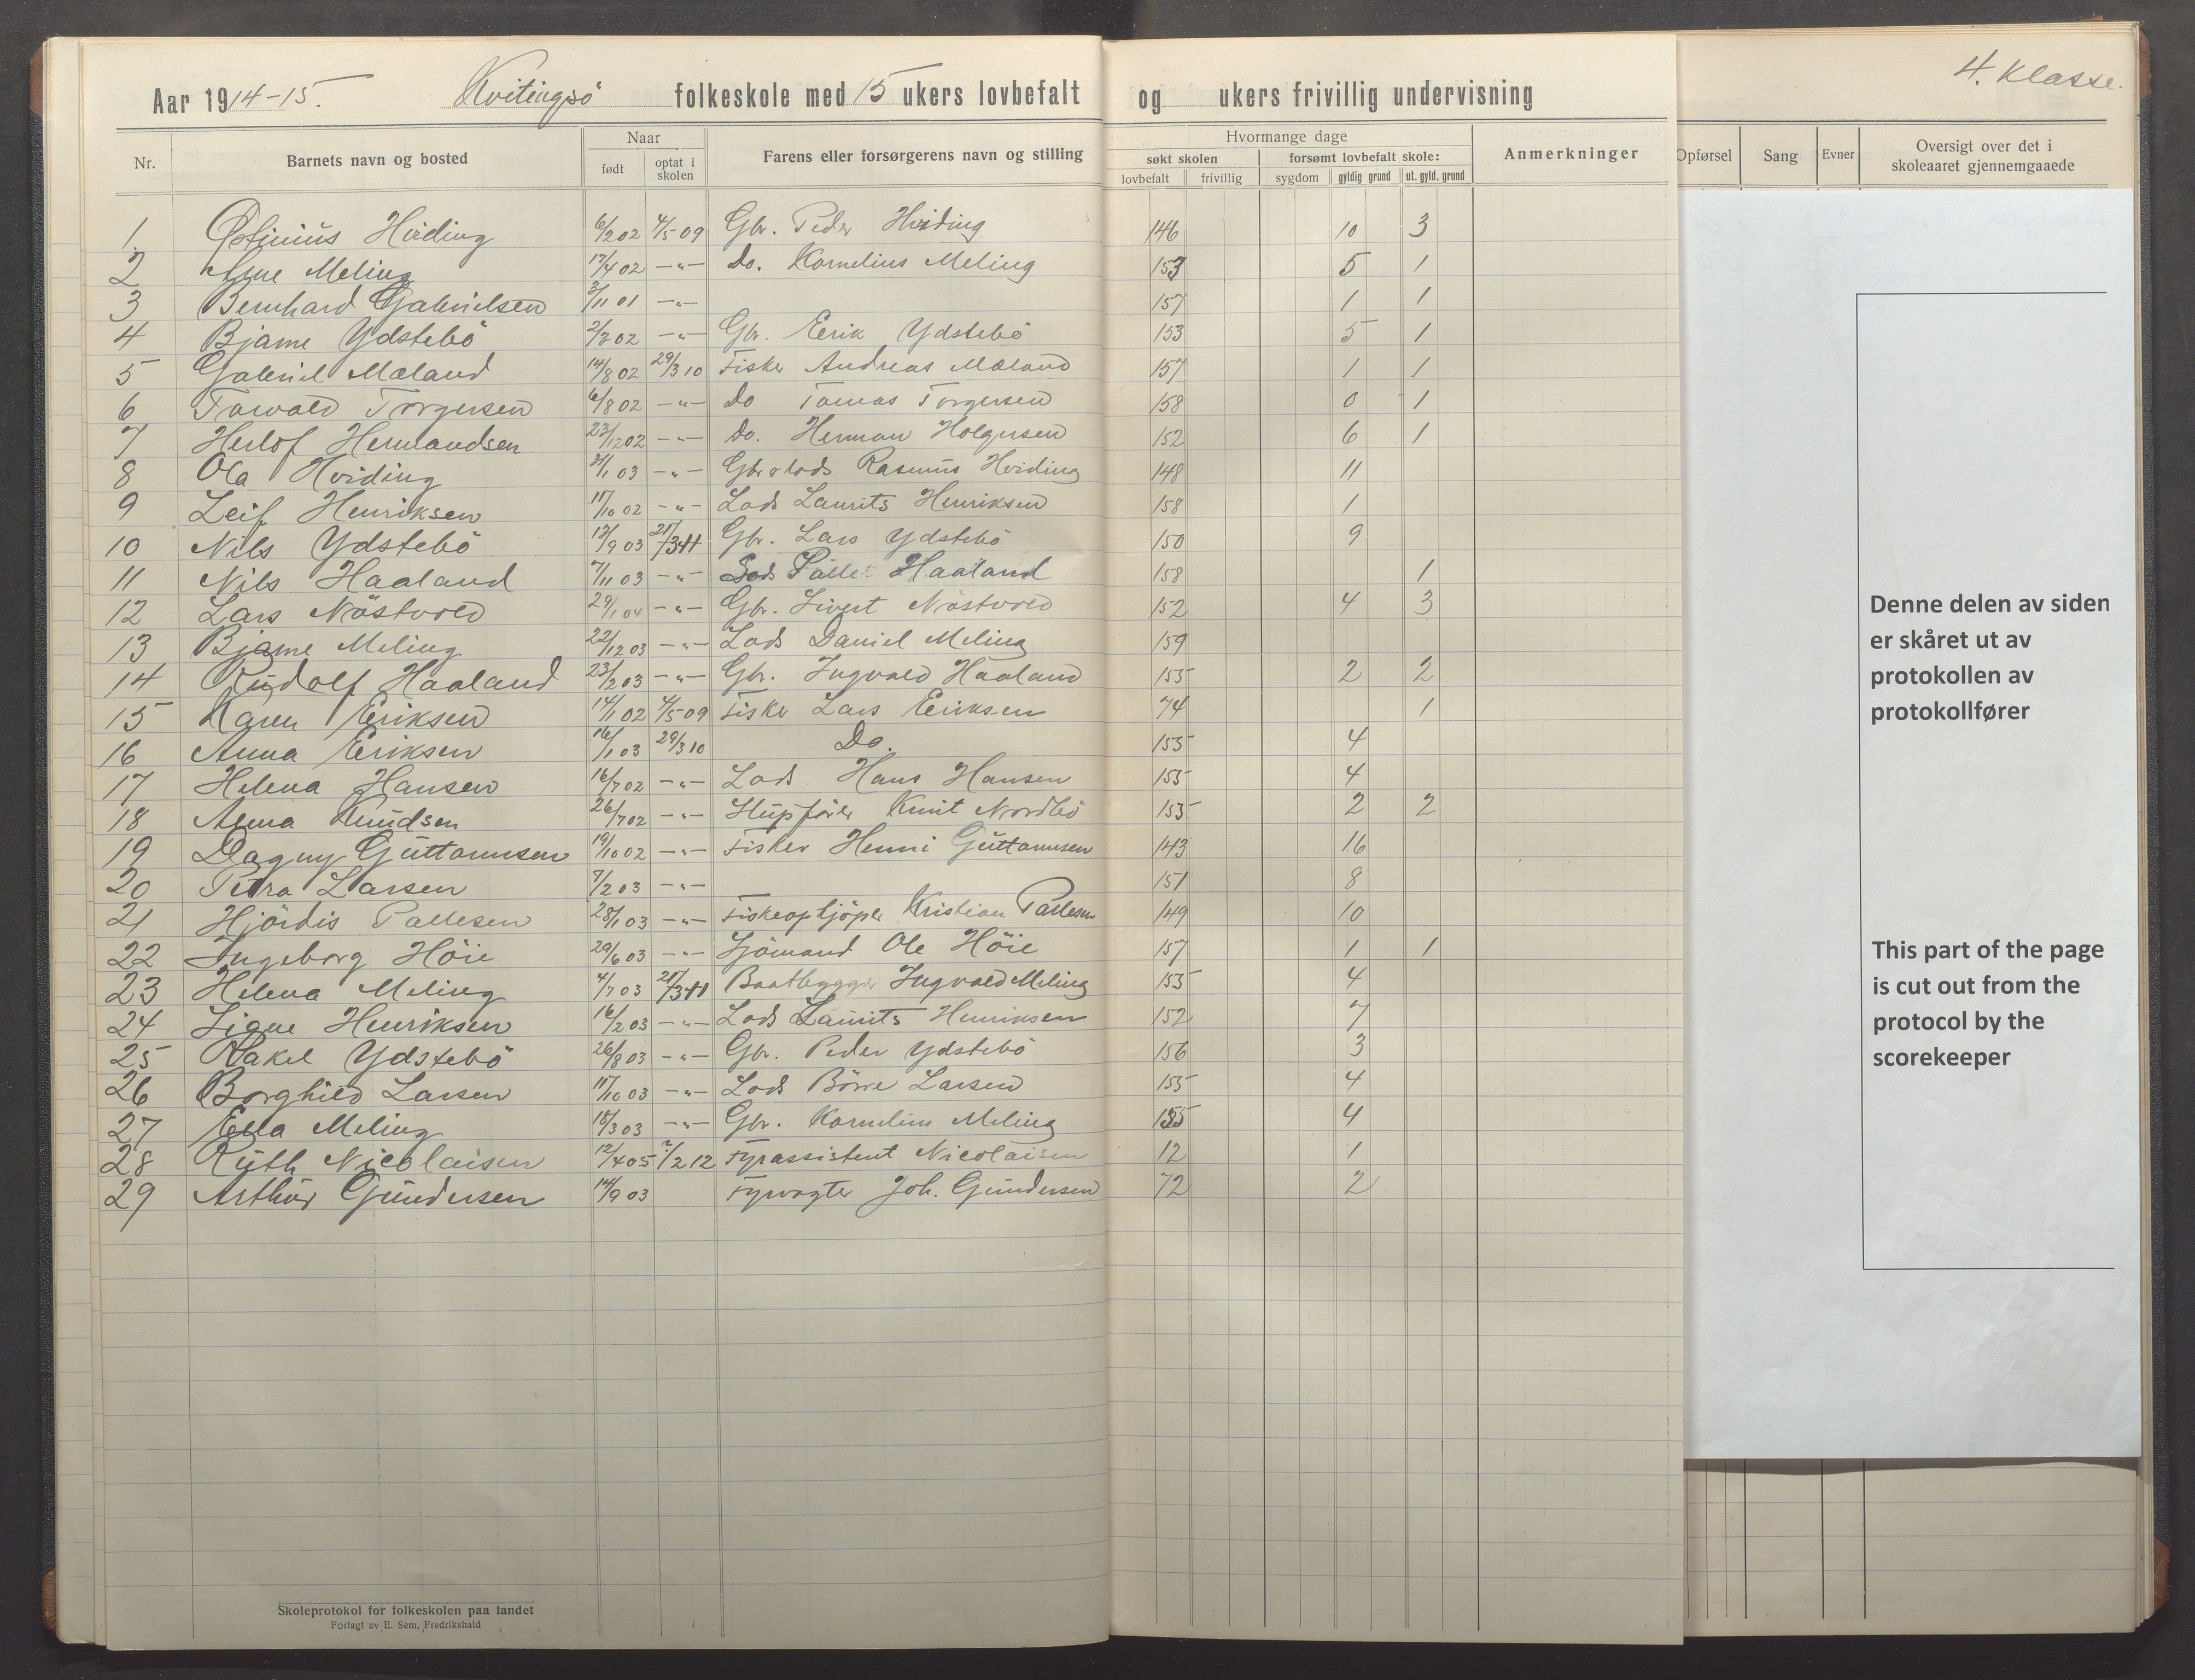 Aar 1914-15. Kvitingsö folkeskole med 15 ukers lovbefalt og ukers frivillig undervisning
4. klasse.
Nr. Barnets navn og bosted Naar født optat i skolen Farens eller forsørgerens navn og stilling Hvormange dage søkt skolen lovbefalt frivillig forsømt lovbefalt skole: sygdom gyldig grund ut. gyld. grund Anmerkninger Opførsel Sang Evner Oversigt over det i skoleaaret gjennemgaaede
1. Hviding 6/2 02 4/5 09 Gbr. Peder Hviding 146 10 3
2 Arne Meling 17/4 02 -"- Do. Kornelius Meling 153 5 1
3 Bernhard Gabrielsen 3/11 01 -"- 157 1 1
4 Bjarne Ydstebö 2/3 02 -"- Gbr. Eerik Ydstebö 153 5 1
5 Gabriel Mæland 14/8 02 29/3 10 Fisker Andreas Mæland 157 1 1
6 Torvald Torgersen 6/8 02 -"- Do Tomas Torgersen 158 0 1
7 Herlof Hermandsen 23/12 02 -"- Do. Herman Holgersen 152 6 1
8 Ola Hviding 31/1 03 -"- Gbr & lods Rasmus Hviding 148 11
9 Leif Henriksen 11/10 02 -"- Lods Laurits Henriksen 158 1
10 Nils Ydstebö 13/9 03 21/3 11 Gbr. Lars Ydstebö 150 9
11 Nils Haaland 7/11 03 -"- Lods Palle Haaland 158 1
12 Lars Nöstvold 29/1 04 -"- Gbr. Sivert Nöstvold 152 4 3
13 Bjarne Meling 22/12 03 -"- Lods Daniel Meling 159
14 Rudolf Haaland 23/2 03 -"- Gbr. Ingvald Haaland 155 2 2
15 Karen Eriksen 14/1 02 4/5 09 Fisker Lars Eriksen 74 1
16 Anna Eriksen 16/1 03 29/3 10 Do. 155 4
17 Helena Hansen 16/7 02 -"- Lods Hans Hansen 155 4
18 Anna Knudsen 26/7 02 -"- Knut Nordbö 155 2 2
19 Dagny Guttormsen 19/10 02 -"- Fisker Henni Guttormsen 143 16
20 Petra Larsen 7/2 03 -"- 151 8
21 Hjördis Pallesen 28/1 03 -"- Fiskeopkjöper Kristian Pallesen 149 10
22 Ingeborg Höie 29/6 03 -"- Sjömand Ole Höie 157 1 1
23 Helena Meling 4/7 03 21/3 11 Baatbygger Ingvald Meling 155 4
24 Signe Henriksen 16/2 03 -"- Lods Laurits Henriksen 152 7
25 Rakel Ydstebö 26/8 03 -"- Gbr. Peder Ydstebö 156 3
26 Borghild Larsen 11/10 03 -"- Lods Börre Larsen 155 4
27 Ella Meling 18/3 03 -"- Gbr. Kornelius Meling 155 4
28 Ruth Nicolaisen 12/4 05 2/2 12 Fyrassistent Nicolaisen 12 1
29 Arthur Gundersen 14/9 03 Fyrvogter Joh. Gundersen 72 2
Denne delen av siden
er skåret ut av
protokollen av
protokollfører
This part of the page
is cut out from the
protocol by the
scorekeeper
Skoleprotokol for folkeskolen paa landet
Forlagt av E. Sem, Fredrikshald